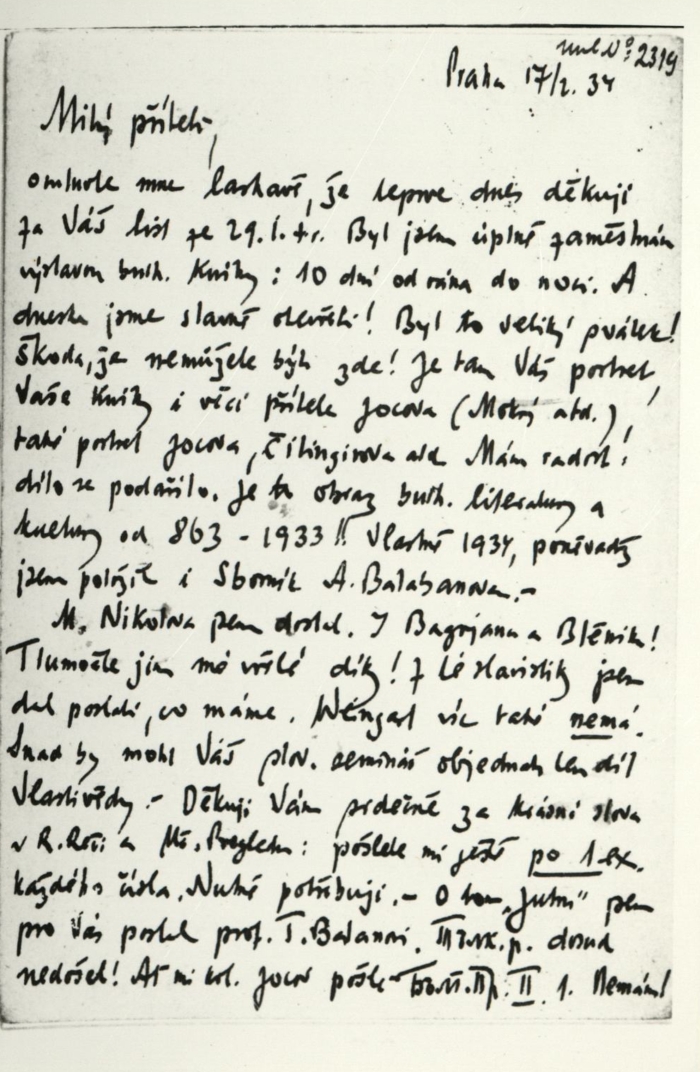 инв. № 2319
Praha 17/2. 34
Milý příteli,
omluvte mne laskavě, že teprve dnes děkuji
za Váš list ze 29.1.t.r. Byl jsem úplně zaměstnán
výstavou bulh. knihy: 10 dní od rána do noci. A
dneska jsme slavně otevřeli! Byl to veliký svátek!
Škoda, že nemůžete být zde! Je tam Váš portret,
Vaše knihy i věci přítele Jocova (Mokrý atd.),
také portret Jocova, Čilingirova atd. Mám radost:
dílo se podařilo. Je to obraz bulh. literatury a
kultury od 863 - 1933!! Vlastně 1934, poněvadž
jsem položil i Sborník A. Balabanova.-
M. Nikolova jsem dostal. I Bagrjanu a Běleník!
Tlumočte jim mé vřelé díky! Z té slavistiky jsem
dal poslati, co máme. Weingart víc také nemá.
Snad by mohl Váš slov. seminář objednati ten díl
Vlastivědy.- Děkuji Vám srdečně za krásná slova
v R. Reči a Ml. Pregledu: pošlete mi ještě po 1 ex.
každého čísla. Nutně potřebuji.- O tom „Jutru" jsem
pro Vás poslal prof. T. Balanovi. dosud
nedošel! Ať mi kol. Jocov pošle II. 1. Nemám!